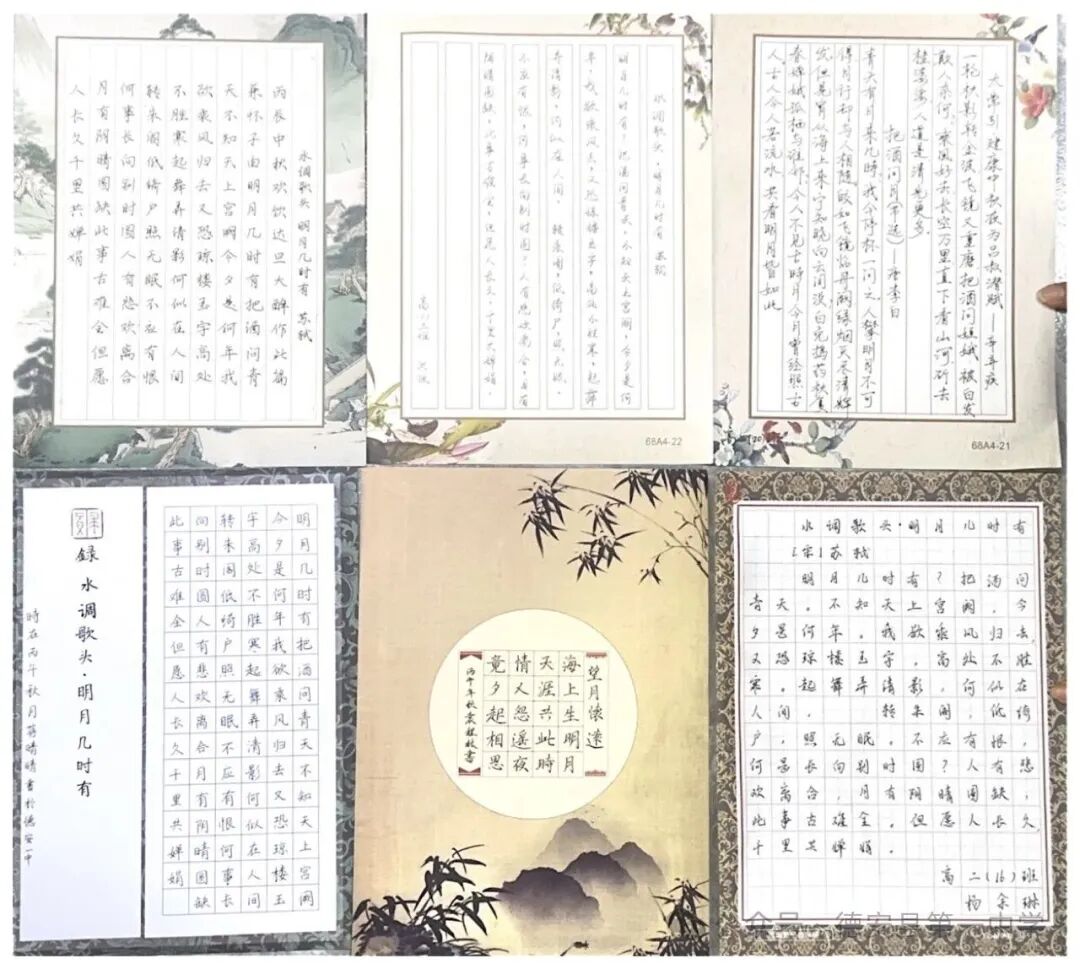 水调歌头 明月几时有 苏轼
丙辰中秋欢饮达旦大醉作此篇
兼怀子由明月几时有把酒问青
天不知天上宫阙今夕是何年我
欲乘风归去又恐琼楼玉宇高处
不胜寒起舞弄清影何似在人间
转朱阁低绮户照无眠不应有恨
何事长向别时圆人有悲欢离合
月有阴晴圆缺此事古难全但愿
人长久千里共婵娟
水调歌头·明月几时有 苏轼
明月几时有,把酒问青天,不知天上宫阙,今夕是何
年,我欲乘风去,又恐琼楼玉宇,高处不胜寒,起舞
弄清影,何似在人间。 转朱阁,低绮户,照无眠。
不应有恨,何事长向别时圆?人有悲欢离合,月有
阴晴圆缺,此事古难全,但愿人长久,千里共婵娟。
68A4-22
太常引 建康中秋夜为吕叔潜赋——辛弃疾
一轮秋影转金波飞镜又重磨把酒问姮娥被白发
欺人奈何、乘风好去长空万里直下看山河斫去
桂婆娑、人道是清光更多。
把酒问月(节选)—唐李白
青天有月来几時我今停杯一问之人攀明月不可
得月行却与人相随皎如飞镜临丹阙绿烟灭尽清辉
发但见宵从海上来宁知晓向云间没白兔捣药秋复
春嫦娥孤栖与谁邻、今人不见古時月今月曾经照古
人古人今人若流水共看明月皆如此
68A4-21
録水调歌头·明月几时有
時在丙午秋月蒋晴晴書於德安一中
明月几时有把酒问青天不知天上宫阙
今夕是何年我欲乘风归去又恐琼楼玉
宇高处不胜寒起舞弄清影何似在人间
转朱阁低绮户照无眠不应有恨何事长
向别时圆人有悲欢离合月有阴晴圆缺
此事古难全但愿人长久千里共婵娟
望月怀遠
海上生明月
天涯共此時
情人怨遥夜
竟夕起相思
水调歌头·明月几时有
[宋]苏轼
明月几时有?把酒问
青天。不知天上宫阙,今
夕是何年。我欲乘风归去,
又恐琼楼玉宇,高处不胜
寒。起舞弄清影,何似在
人间。转朱阁,低绮
户,照无眠。不应有恨,
何事长向别时圆?人有悲
欢离合,月有阴晴圆缺,
此事古难全。但愿人长久,
千里共婵娟。
高二(16)班
杨余琳